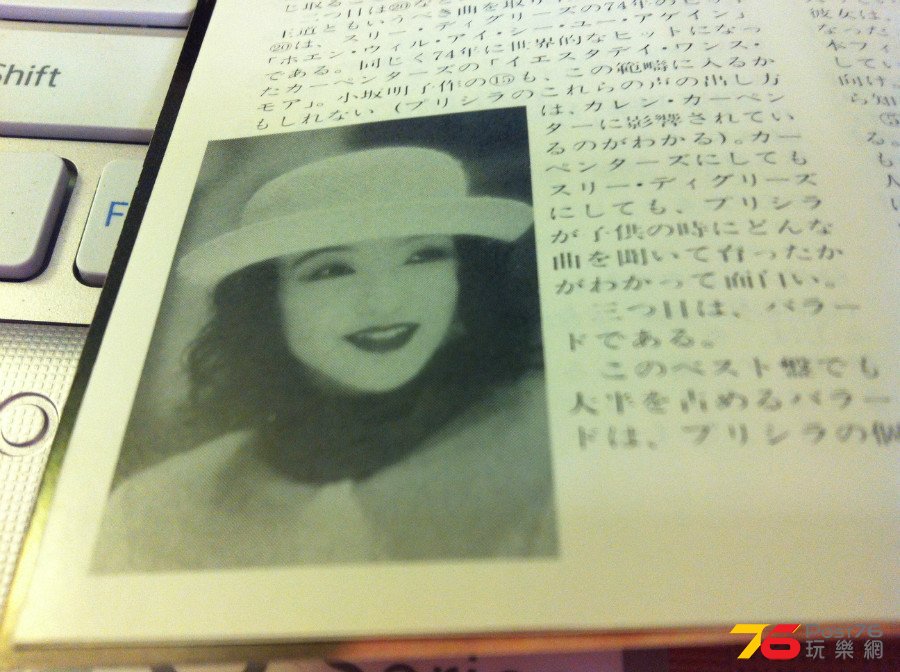 Shift
F
じ取るこ
三つ目は⑳など
王道ともいうべき曲を取り
⑳は、スリー・ディグリーズの74年のヒット
「ホエン・ウィル・アイ・シー・ユー・アゲイン」
である。同じく74年に世界的なヒットになっ
たカーペンターズの「イエスタデイ・ワンス・
モア」。小坂明子作の⑮も、この範疇に入るか
もしれない(プリシラのこれらの声の出し方
は、カレン・カーペン
ターに影響されてい
るのがわかる)。カー
ペンターズにしても
スリー・ディグリーズ
にしても、プリシラ
が子供の時にどんな
曲を聞いて育ったか
がわかって面白い。
三つ目は、バラー
ドである。
このベスト盤でも
大半を占めるバラー
ドは、プリシラの個
彼女は、
なった
本フィ
してい
向け、
ら知
⑤
る。
も、
76
Post76
玩樂網